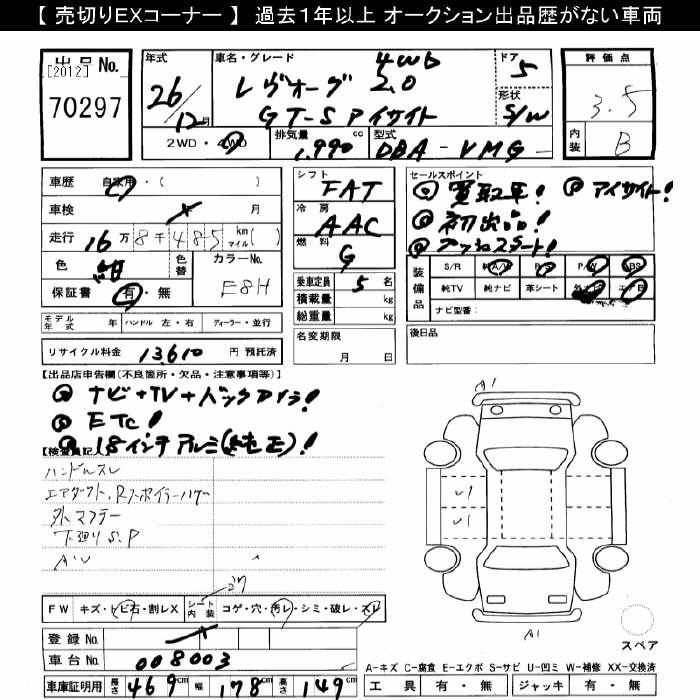 【 売切りEXコーナー 】 過去１年以上 オークション出品歴がない車両
出品 No.
[2012]
70297
年式
26/12月
車名・グレード
4WD
レヴォーグ 2.0
GT-S アイサイト
ドア
5
形状
S/W
評価点
3.5
内装
B
2WD・4WD
排気量
1,990 cc
型式
DBA-VMG-
車歴 自家用・( )
車検 月
走行 16万8千485 km マイル( )
色 紺
色替
カラーNo.
E8H
保証書 有・無
シフト
FAT
冷房
AAC
燃料
G
乗車定員 5 名
積載量 kg
総重量 kg
名変期限
月 日
セールスポイント
買取車! アイサイト!
初出品!
プッシュスタート!
装備品
S/R 純A/W P/S P/W ABS
純TV 純ナビ 革シート 外ナビ エアB
ナビ型番:
後日品
モデル年式 年 ハンドル 左・右 ディーラー・並行
リサイクル料金 13,610 円 預託済
【出品店申告欄(不良箇所・欠品・注意事項等)】
ナビ+TV+バックカメラ!
ETC!
18インチアルミ(純正)!
【検査員記入】
ハンドルスレ
エアダクト、Rスポイラーハゲ
外マフラー
下廻りS、P
FW キズ・トビ石・割レX
シート内装
コゲ・穴・汚レ・シミ・破レ・スレ
登録 No.
車台 No. 008003
車庫証明用 長さ 469cm 幅 178cm 高さ 149cm
A1
A1
スペア
A-キズ C-腐食 E-エクボ S-サビ U-凹ミ W-補修 XX-交換済
工具 有・無 ジャッキ 有・無